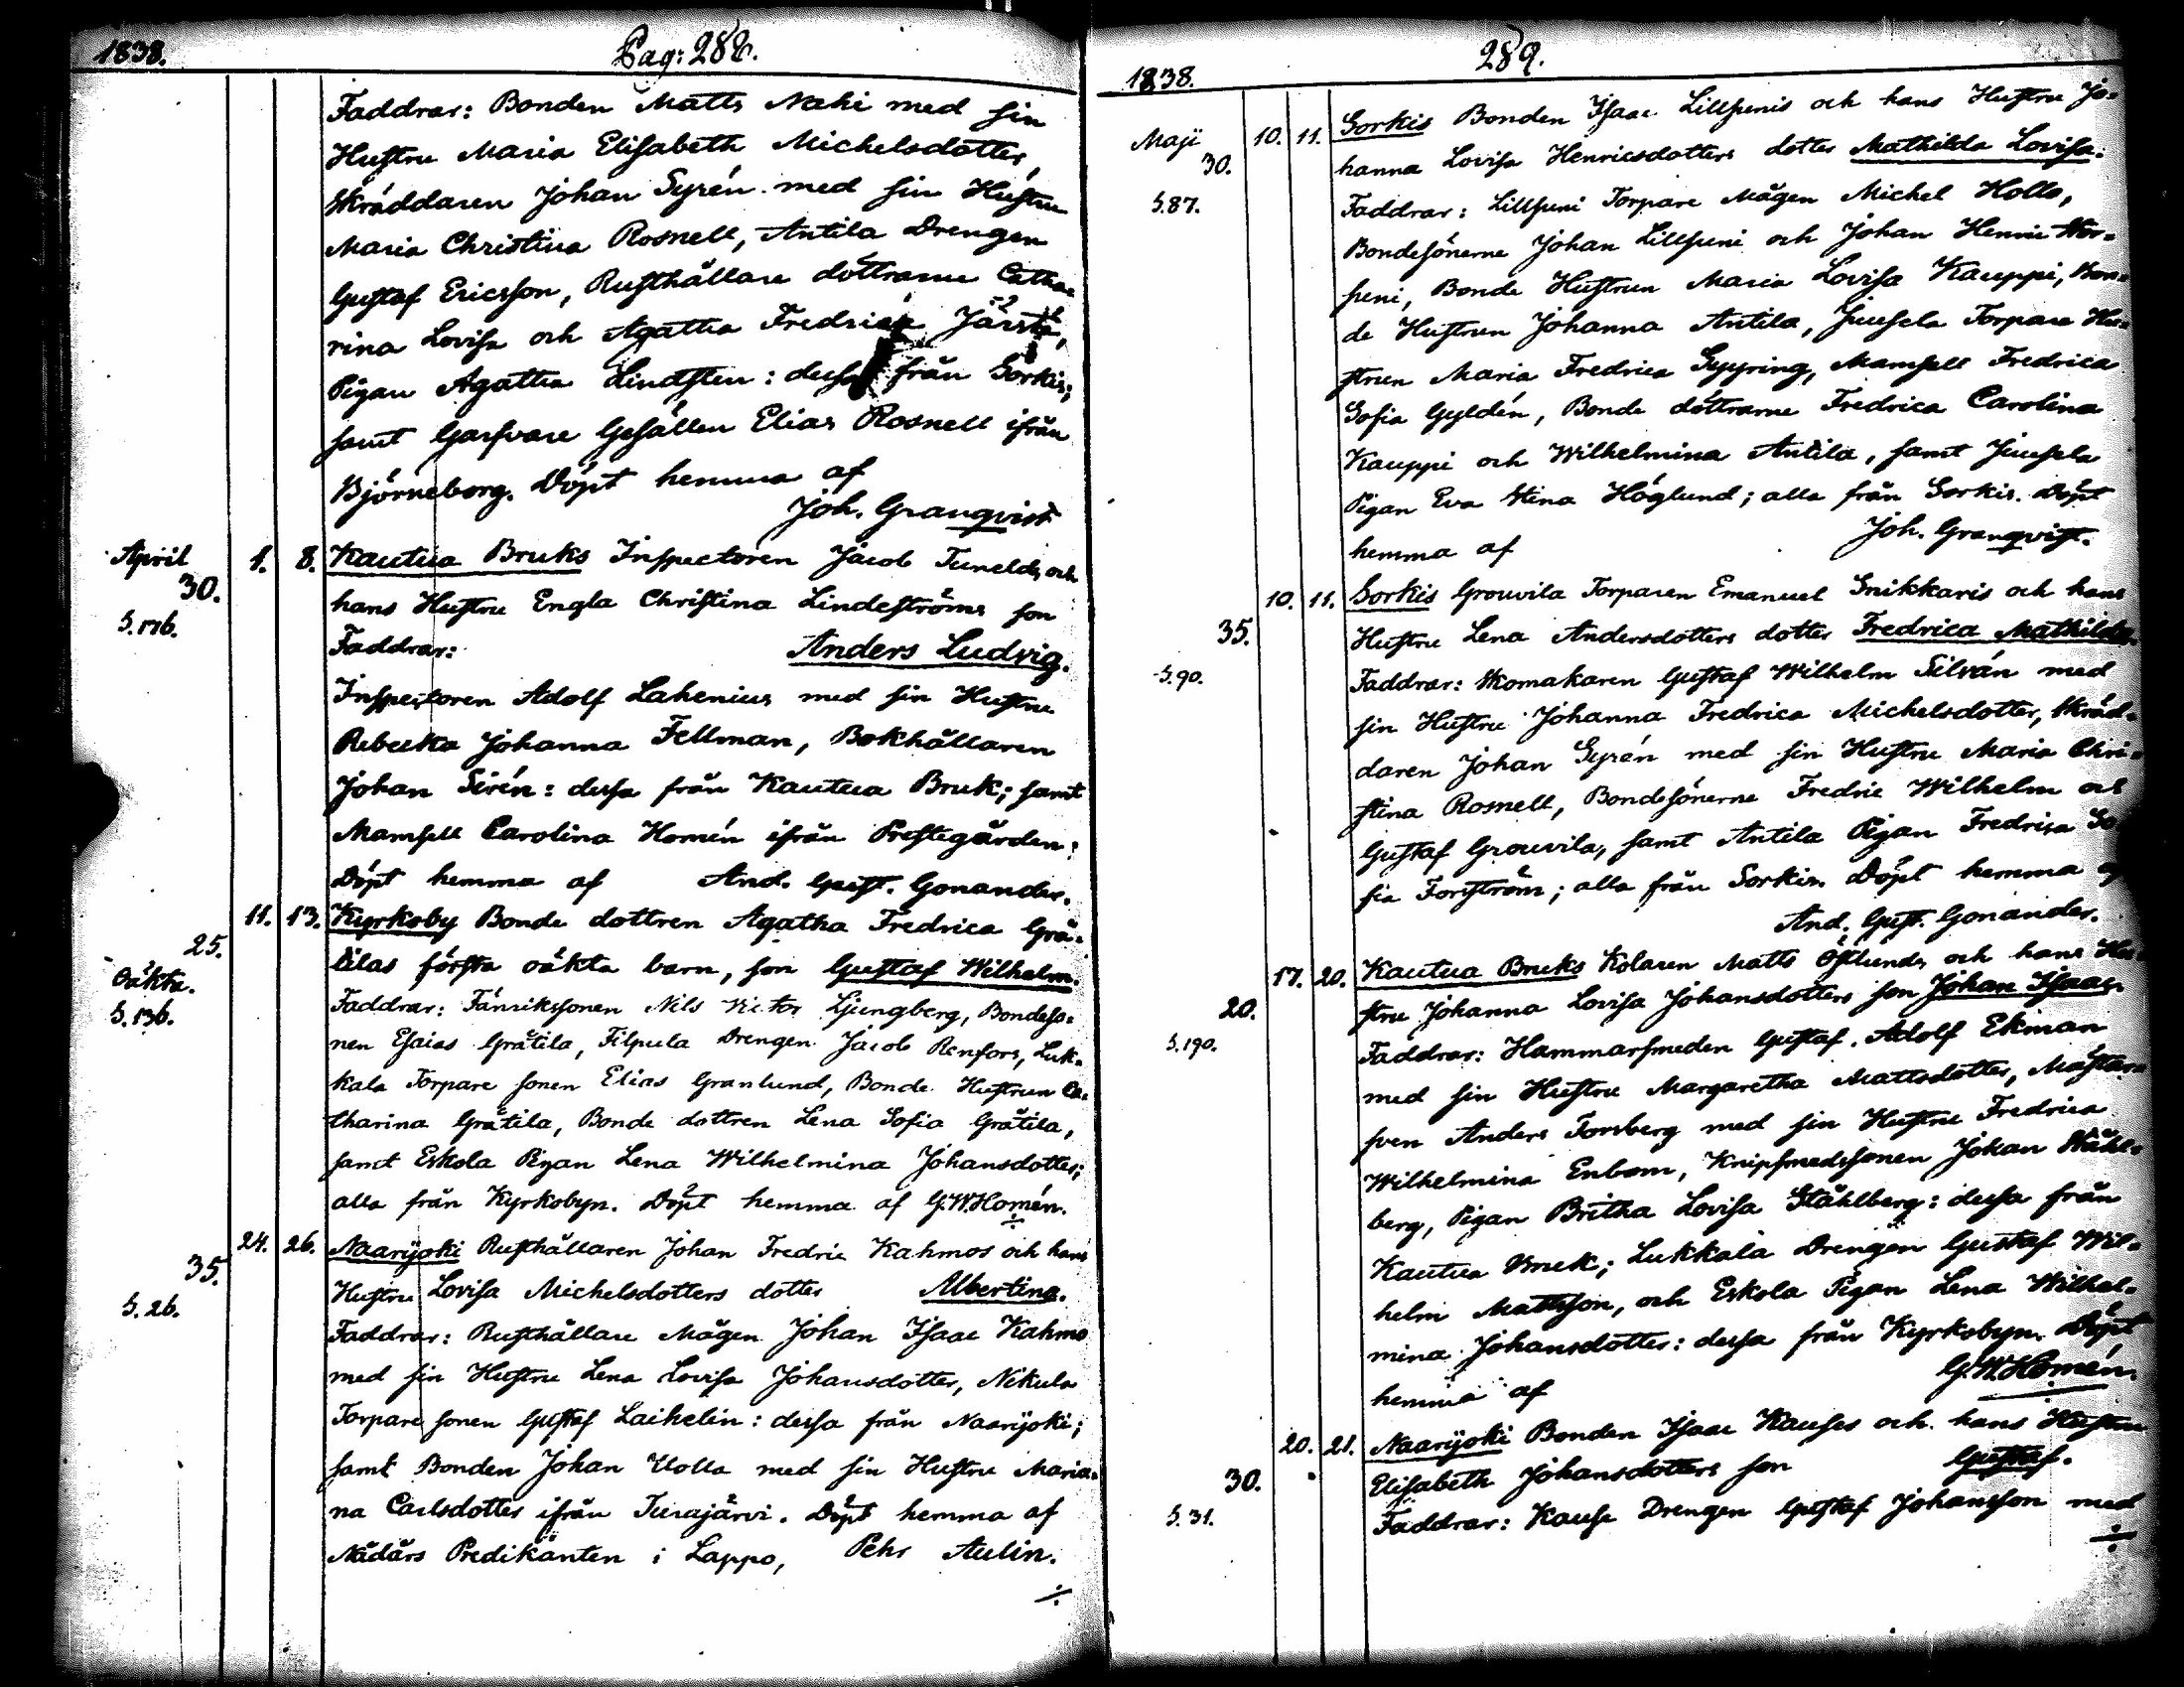 1838. Pag: 288.
Faddrar: Bonden Matts Nahi med sin
Hustru Maria Elisabeth Michelsdotter,
Skräddaren Johan Syrén med sin Hustru
Maria Christina Rosnell, Antila Drengen
Gustaf Ericsson, Rusthållare döttrarne Catha-
rina Lovisa och Agatha Fredrica Järstä,
Pigan Agatha Lindsten: dessa från Sorkis;
samt Garfvare Gesällen Elias Rosnell ifrån
Björneborg. Döpt hemma af
Joh. Granqvist
April 30. S.176. 1. 8. Kautua Bruks Inspectoren Jacob Tunelds och
hans Hustru Engla Christina Lindeströms son
Faddrar: Anders Ludvig.
Inspectoren Adolf Lahenius med sin Hustru
Rebecka Johanna Fellman, Bokhållaren
Johan Sirén: dessa från Kautua Bruk; samt
Mamsell Carolina Homén ifrån Prestegården:
Döpt hemma af And. Gust. Gonander.
25. Oäkta. S.136. 11. 13. Kyrkoby Bonde dottren Agatha Fredrica Grä-
tilas första oäkta barn, son Gustaf Wilhelm.
Faddrar: Fänrikssonen Nils Victor Ljungberg, Bondeso-
nen Esaias Grätila, Filpula Drengen Jacob Renfors, Luk-
kala Torpare sonen Elias Granlund, Bonde Hustrun Ca-
tharina Grätila, Bonde dottren Lena Sofia Grätila,
samt Eskola Pigan Lena Wilhelmina Johansdotter;
alla från Kyrkobyn. Döpt hemma af G.W.Homén.
35. S.26. 24. 26. Naarijoki Rusthållaren Johan Fredric Kahmos och hans
Hustru Lovisa Michelsdotters dotter Albertina.
Faddrar: Rusthållare Mågen Johan Isaac Kahmo
med sin Hustru Lena Lovisa Johansdotter, Nikula
Torpare sonen Gustaf Laihelin: dessa från Naarijoki;
samt Bonden Johan Uolla med sin Hustru Maria-
na Carlsdotter ifrån Turajärvi. Döpt hemma af
Nådårs Predikanten i Lappo, Pehr Aulin.
÷
1838. 289.
Maji 30. S.87. 10. 11. Sorkis Bonden Isaac Lillsunis och hans Hustru Jo-
hanna Lovisa Henricsdotters dotter Mathilda Lovisa.
Faddrar: Lillsuni Torpare Mågen Michel Hollo,
Bondesönerne Johan Lillsuni och Johan Henric Stor-
suni, Bonde Hustrun Maria Lovisa Kauppi, Bon-
de Hustrun Johanna Antila, Juusela Torpare Hu-
strun Maria Fredrica Sypring, Mamsell Fredrica
Sofia Gyldén, Bonde döttrarne Fredrica Carolina
Kauppi och Wilhelmina Antila, samt Juusela
Pigan Eva Stina Höglund; alla från Sorkis. Döpt
hemma af Joh. Granqvist.
35. S.90. 10. 11. Sorkis Grouvila Torparen Emanuel Snikkaris och hans
Hustru Lena Andersdotters dotter Fredrica Mathilda.
Faddrar: Skomakaren Gustaf Wilhelm Silván med
sin Hustru Johanna Fredrica Michelsdotter, Skräd-
daren Johan Syrén med sin Hustru Maria Chri-
stina Rosnell, Bondesönerne Fredric Wilhelm och
Gustaf Grouvila, samt Antila Pigan Fredrica So-
fia Forsström; alla från Sorkis. Döpt hemma af
And. Gust. Gonander.
20. S.190. 17. 20. Kautua Bruks Kolaren Matts Östlunds och hans Hu-
stru Johanna Lovisa Johansdotters son Johan Isaac.
Faddrar: Hammarsmeden Gustaf Adolf Ekman
med sin Hustru Margaretha Mattsdotter, Mästar-
sven Anders Forsberg med sin Hustru Fredrica
Wilhelmina Enbom, Knipsmedssonen Johan Ståhl-
berg, Pigan Britha Lovisa Ståhlberg: dessa från
Kautua Bruk; Lukkala Drengen Gustaf Wil-
helm Mattsson, och Eskola Pigan Lena Wilhel-
mina Johansdotter: dessa från Kyrkobyn. Döpt
hemma af G.W.Homén.
30. S.31. 20. 21. Naarijoki Bonden Isaac Kauses och hans Hustru
Elisabeth Johansdotters son Gustaf.
Faddrar: Kause Drengen Gustaf Johansson med
÷